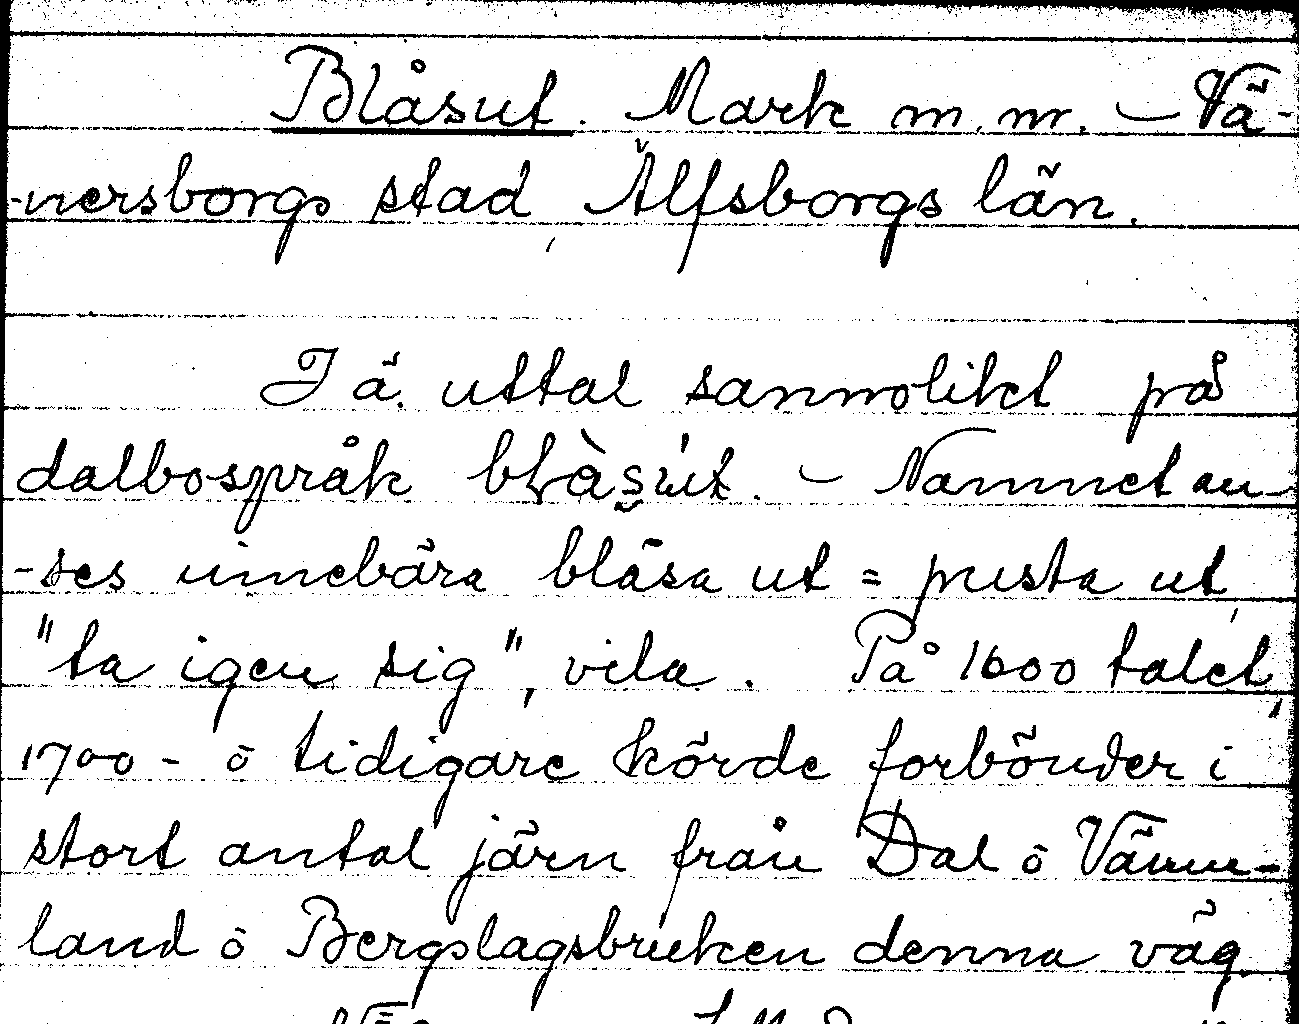 Blåsut. Mark m. m. – Vä-
-nersborgs stad, Älfsborgs län.
I ä. uttal sannolikt på
dalbospråk
. – Namnet an-
-ses innebära blåsa ut = pusta ut,
"ta igen sig", vila. På 1600 talet,
1700 - o tidigare körde forbönder i
stort antal järn från Dal o Värm-
land o Bergslagsbruken denna väg